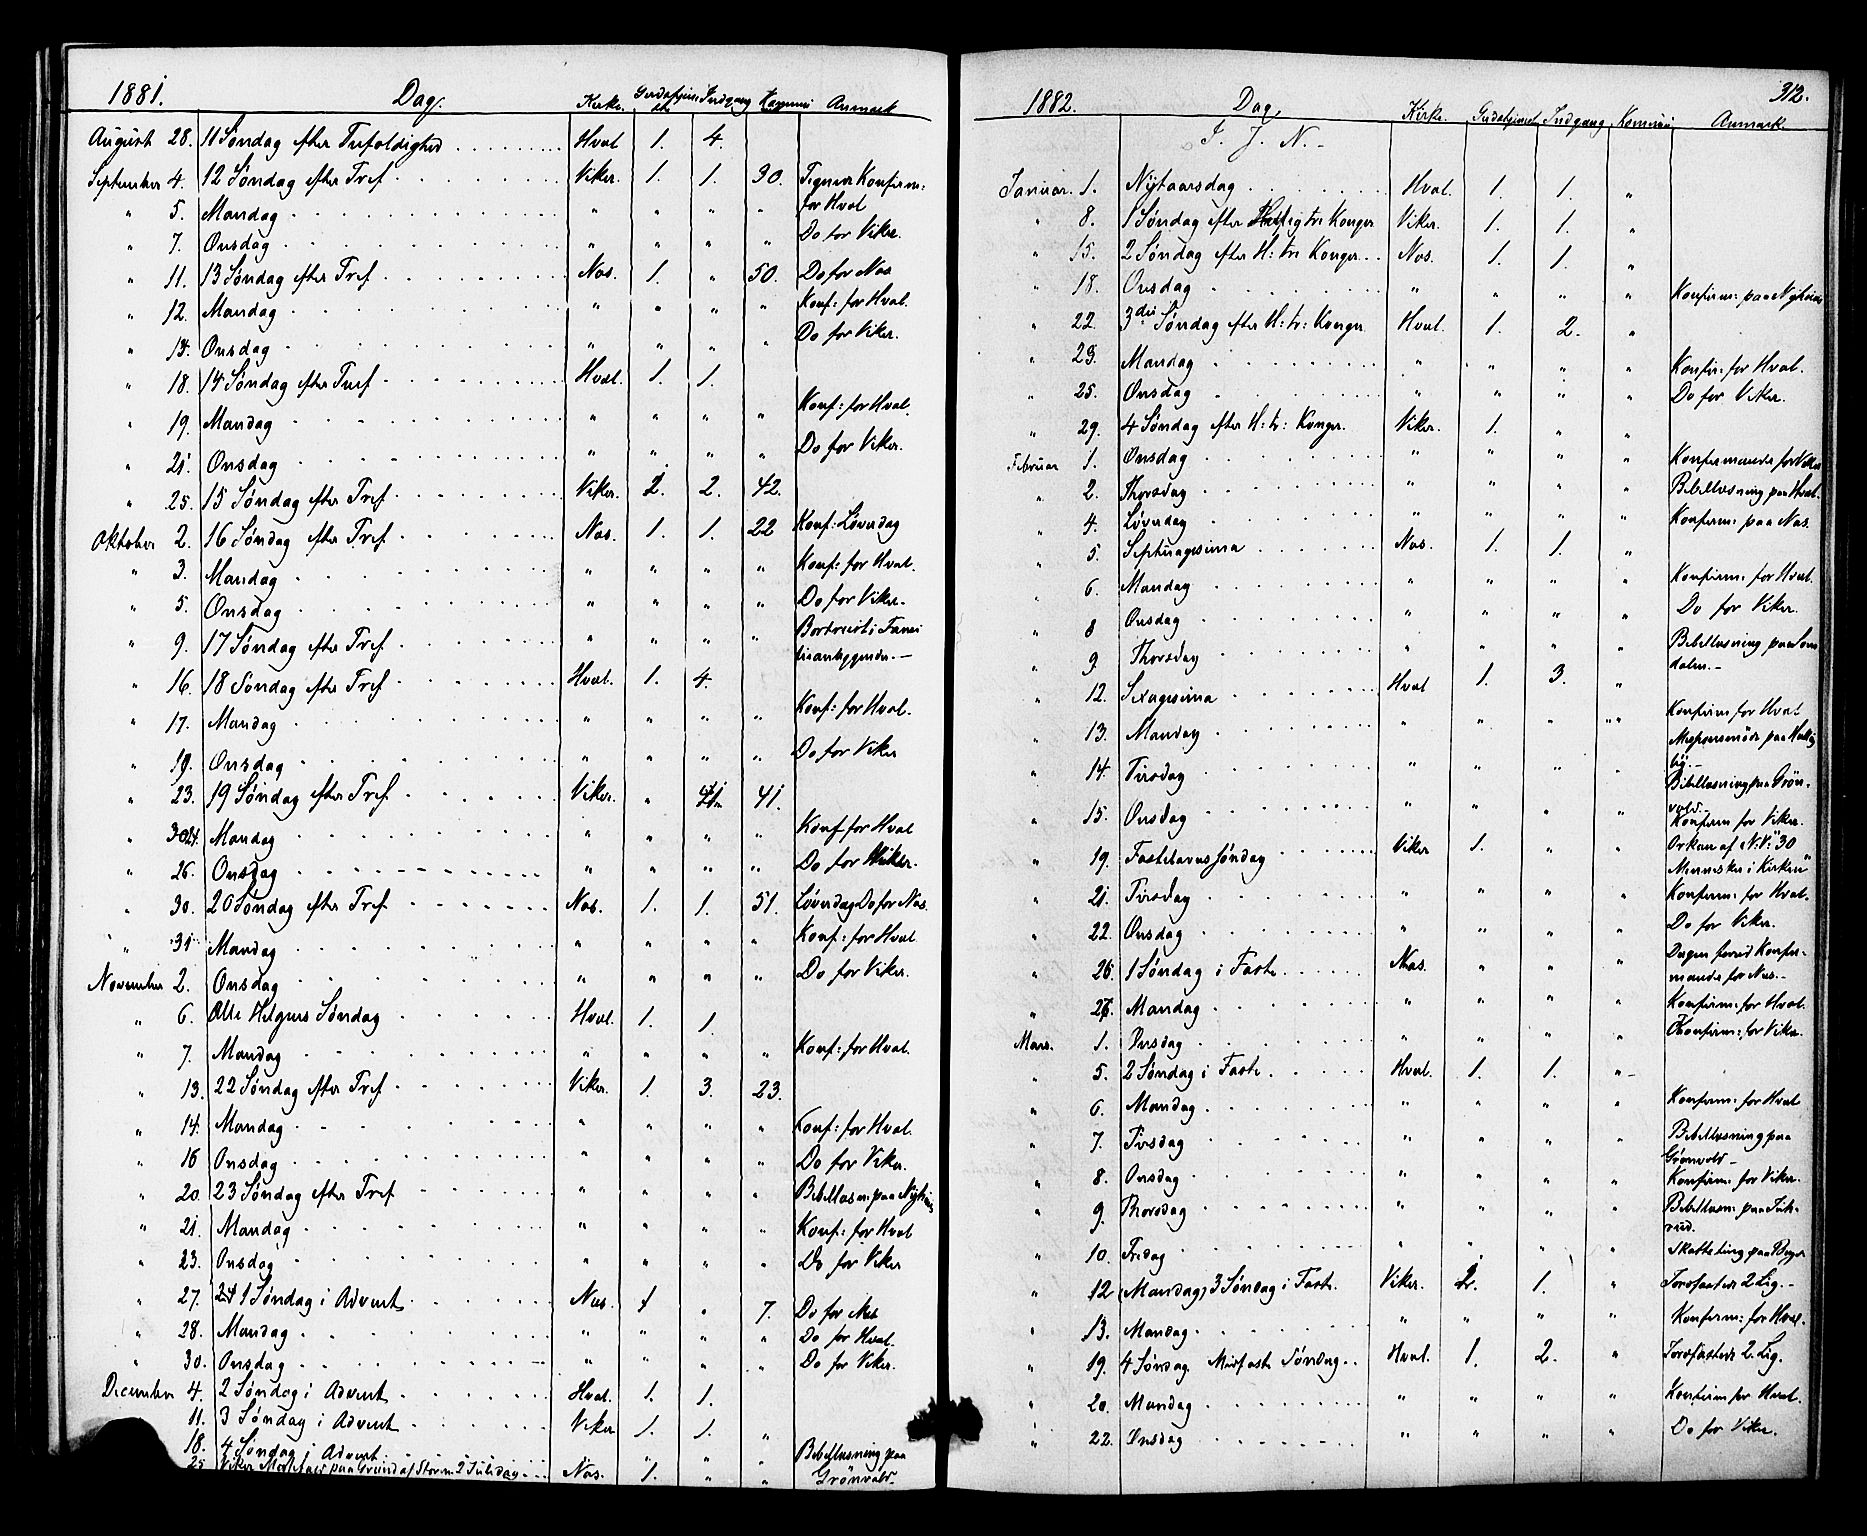 1881. Dag. Kirke. Indgang Anmærk
August 28. 11 Søndag efter Trefoldighed Hval 1. 4.
September 4. 12 Søndag efter Tref Viker. 1. 1. 30. Konfirm:
" 5. Mandag " " " " for Hval
" 7. Onsdag " " " " Do for Viker.
" 11. 13 Søndag efter Tref Næs. 1. " 50. Do for Næs
" 12. Mandag " " " " Konf: for Hval.
" 14. Onsdag " " " " Do for Viker.
" 18. 14 Søndag efter Tref Hval. 1. 1.
" 19. Mandag " " " " Konf: for Hval
" 21. Onsdag " " " " Do for Viker.
" 25. 15 Søndag efter Tref Viker. 2. 2. 42.
Oktober 2. 16 Søndag efter Tref Næs. 1. 1. 22 Konf: Løverdag
" 3. Mandag " " " " Konf: for Hval.
" 5. Onsdag " " " " Do for Viker.
" 9. 17 Søndag efter Tref " " " " Bortreist i
" 16. 18 Søndag efter Tref Hval. 1. 4.
" 17. Mandag " " " " Konf: for Hval.
" 19. Onsdag " " " " Do for Viker
" 23. 19 Søndag efter Tref Viker. " 41.
" 24. Mandag " " " " Konf for Hval
" 26. Onsdag " " " " Do for Viker.
" 30. 20 Søndag efter Tref Næs. 1. 1. 51. Løverdag Do for Næs.
" 31. Mandag " " " " Konf: for Hval
November 2. Onsdag " " " " Do for Viker.
" 6. Alle Helgens Søndag Hval. 1. 1.
" 7. Mandag " " " " Konf: for Hval.
" 13. 22 Søndag efter Tref Viker. 1. 3. 23.
" 14. Mandag " " " " Konf: for Hval.
" 16 Onsdag " " " " Do for Viker.
" 20. 23 Søndag efter Tref " " " " Bibellæsn: paa
" 21. Mandag " " " " Konf: for Hval
" 23. Onsdag " " " " Do for Viker
" 27. 1 Søndag i Advent Næs. 1 " 7. Do for Næs
" 28. Mandag " " " " Do for Hval.
" 30. Onsdag " " " " Do for Viker.
December 4. 2 Søndag i Advent Hval. 1. 1.
11. 3 Søndag i Advent Viker 1. 1. "
18. 4 Søndag i Advent " " " Bibellæsning paa
25 Viker paa Grund af Storm 2 Juledag Næs. 1. " " Grønvold.
1882. Dag Kirke. Gudstjenest Indgang Anmærk. 312.
I. J. N.
Januar. 1. Nytaarsdag Hval. 1. 1. "
" 8. 1 Søndag efter Hellig tre Konger Viker. 1. 1. "
" 15. 2 Søndag efter H: tre Konger Næs. 1. 1. "
" 18. Onsdag " " " " Konfirm: paa
" 22. 3die Søndag efter H: tr: Konger Hval. 1. 2. "
" 23. Mandag " " " " Konfirm: for Hval.
" 25. Onsdag " " " " Do for Viker.
" 29. 4 Søndag efter H: tr: Konger. Viker. 1. " "
Februar 1. Onsdag " " " " Konfirmande for Viker
" 2. Thorsdag " " " " Bibellæsning paa Hval.
" 4. Løverdag " " " " Konfirm: paa Næs.
" 5. Septuagesima Næs. 1. 1. "
" 6. Mandag " " " " Konfirm: for Hval.
" 8 Onsdag " " " " Do for Viker.
" 9. Thorsdag " " " " Bibellæsning paa Som
dalen.
" 12. Sexagesima Hval 1. 3. "
" 13. Mandag " " " " Konfirm for Hval
" 14. Tirsdag " " " " Missionsmøde paa
by.
" 15. Onsdag " " " " Bibellæsning paa Grøn-
vold.
Konfirm for Viker.
" 19. Fastelavns Søndag Viker 1. " " Orkan af N.V. 30
Mennesker i Kirken
" 21. Tirsdag " " " " Konfirm: for Hval.
" 22. Onsdag " " " " Do for Viker.
" 26 1 Søndag i Faste Næs. " " " Dagen forud Konfir-
mande for Næs.
" 27. Mandag " " " " Konfirm: for Hval.
Mars. 1. Onsdag " " " " Konfirm: for Viker.
" 5. 2 Søndag i Faste Hval. 1. 1. "
" 6. Mandag " " " " Konfirm: for Hval
" 7. Tirsdag " " " " Bibellæsning paa
Grønvold
" 8. Onsdag " " " " Konfirm: for Viker.
" 9. Thorsdag " " " " Bibellæsn: paa
rud.
" 10. Fredag " " " " Skatteting paa
" 12 (Mandag) 3 Søndag i Faste Viker. 1. " Jordfæstede 2 Lig.
" 13. Mandag " " " " Konfirm: for Hval.
" 19. 4 Søndag Midfaste Søndag Hval. 1. 2. " Jordfæstede 2 Lig.
" 20. Mandag " " " " Konfirm for Hval.
" 22. Onsdag " " " " Do for Viker.